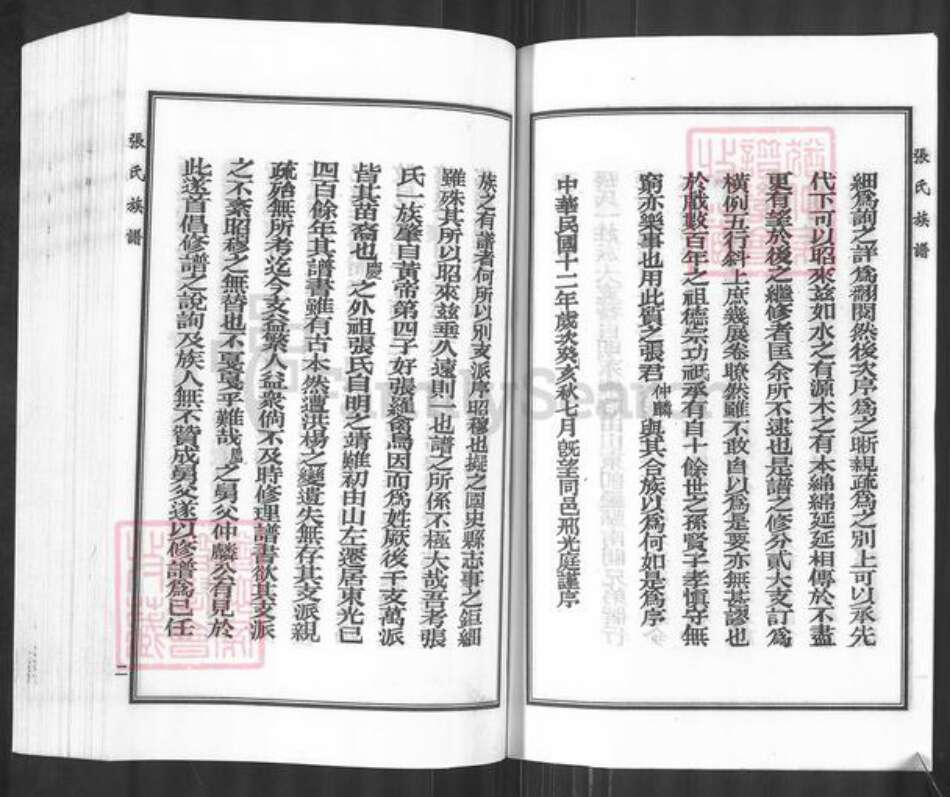 張氏族譜
細爲詢之評爲翻閱然後次序爲之晰親疏爲之別上可以承先
代下可以昭來玆如水之有源木之有本綿綿延延相傳於不盡
更有望於後之繼修者匡余所不逮也是譜之修分貳大支訂爲
橫例五行斜上庶幾展卷暸然雖不敢自以爲是要亦無甚謬也
於戲數百年之祖德宗功祇承有自十餘世之孫賢子孝愼守無
窮亦樂事也用此質之張君仲麟與其合族以爲何如是爲序
中華民國十二年歲次癸亥秋七月旣望同邑邢光庭謹序
族之有譜者何所以別支派序昭穆也擬之國史縣志事之鉅細
雖殊其所以昭來玆垂久遠則一也譜之所係不極大哉吾考張
氏一族肇自黃帝第四子好張羅禽鳥因而爲姓厥後千支萬派
皆其苗裔也慶之外祖張氏自明之靖難初由山左遷居東光已
四百餘年其譜書雖有古本然遭洪楊之變遺失無存其支派親
疏殆無所考迄今支益繁人益衆倘不及時修理譜書欲其支派
之不紊昭穆之無替也不戞戞乎難哉慶之舅父仲麟公有見於
此遂首倡修譜之說詢及族人無不贊成舅父遂以修譜爲己任
張氏族譜
二
FamilySearch